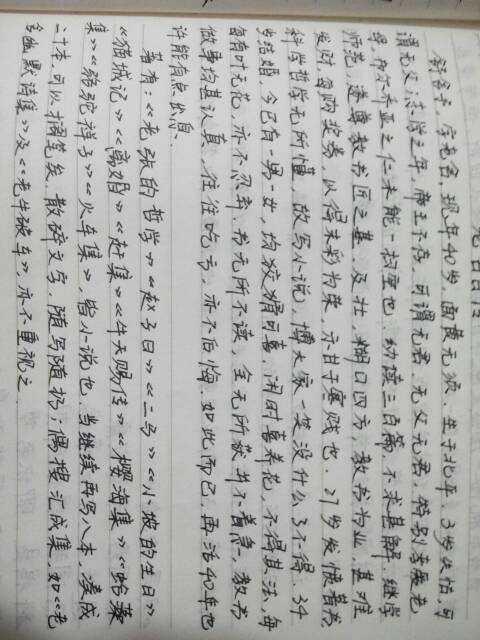 舒舍予,字老舍,现年40岁,面黄无须,生于北平,3岁失怙,可
谓无父;志学之年,帝王不存,可谓无君.无父无君,特别孝爱老
母,布尔乔亚之仁未能一扫空也.幼读三百篇,不求甚解.继学
师范,遂奠教书匠之基.及壮,糊口四方,教书为业,甚难
发财,每购奖券,以得末彩为荣,示甘于寒贱也.27岁发愤著书,
科学哲学无所懂,故写小说,博大家一笑没什么了不得.34
岁结婚,今已有一男一女,均狡猾可喜.闲时喜养花,不得其法,每
每有叶无花,亦不忍弃.书无所不读,全无所获并不着急.教书
做事均甚认真,往往吃亏,亦不后悔.如此而已,再活40年也
许能有点出息.
著有:《老张的哲学》《赵子曰》《二马》《小坡的生日》
《猫城记》《离婚》《赶集》《牛天赐传》《樱海集》《蛤藻
集》《骆驼祥子》《火车集》,皆小说也.当继续再写八本,凑成
二十本,可以搁笔矣.散碎文写,随写随扔;偶搜汇成集,如《老
舍幽默诗集》及《老牛破车》,亦不重视之.